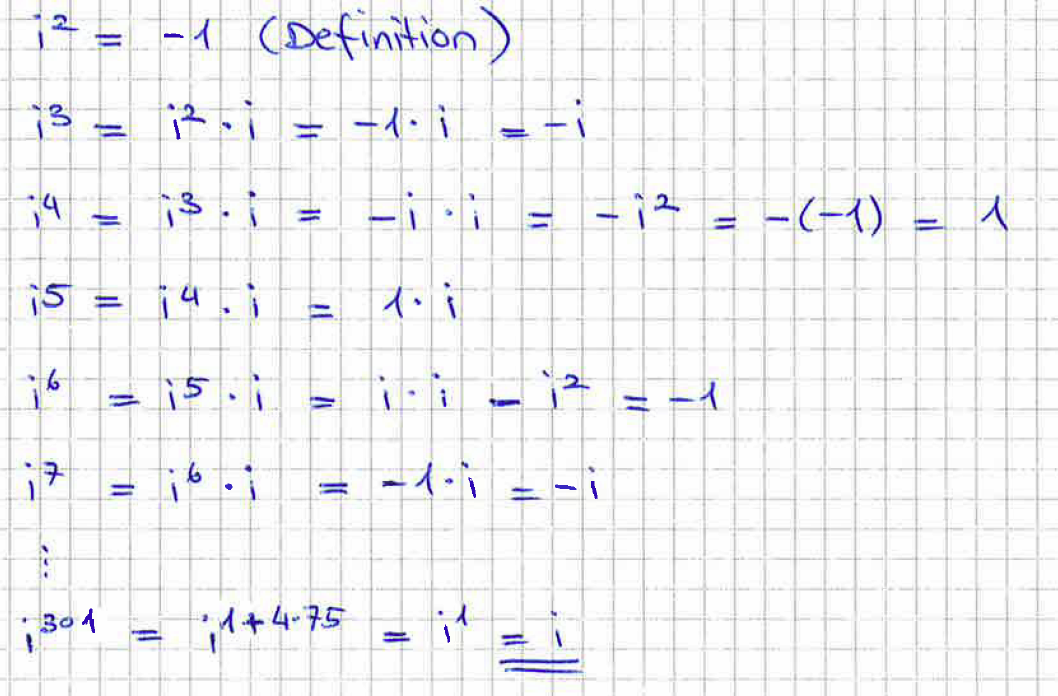 i² = -1 (Definition)
i³ = i² · i = -1 · i = -i
i⁴ = i³ · i = -i · i = -i² = -(-1) = 1
i⁵ = i⁴ · i = 1 · i
i⁶ = i⁵ · i = i · i - i² = -1
i⁷ = i⁶ · i = -1 · i = -i
⋮
i³⁰¹ = i¹⁺⁴·⁷⁵ = i¹ = i